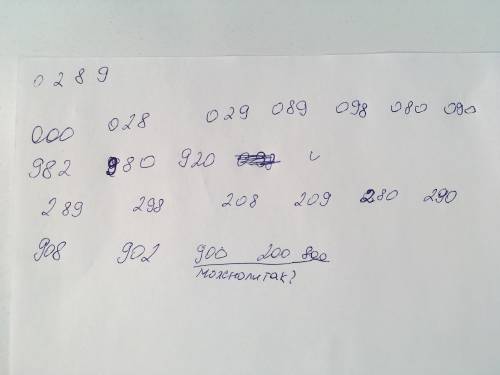 0 2 8 9
000 028 029 089 098 080 090
982 980 920
289 298 208 209 280 290
908 902 900 200 800
можнолитак?